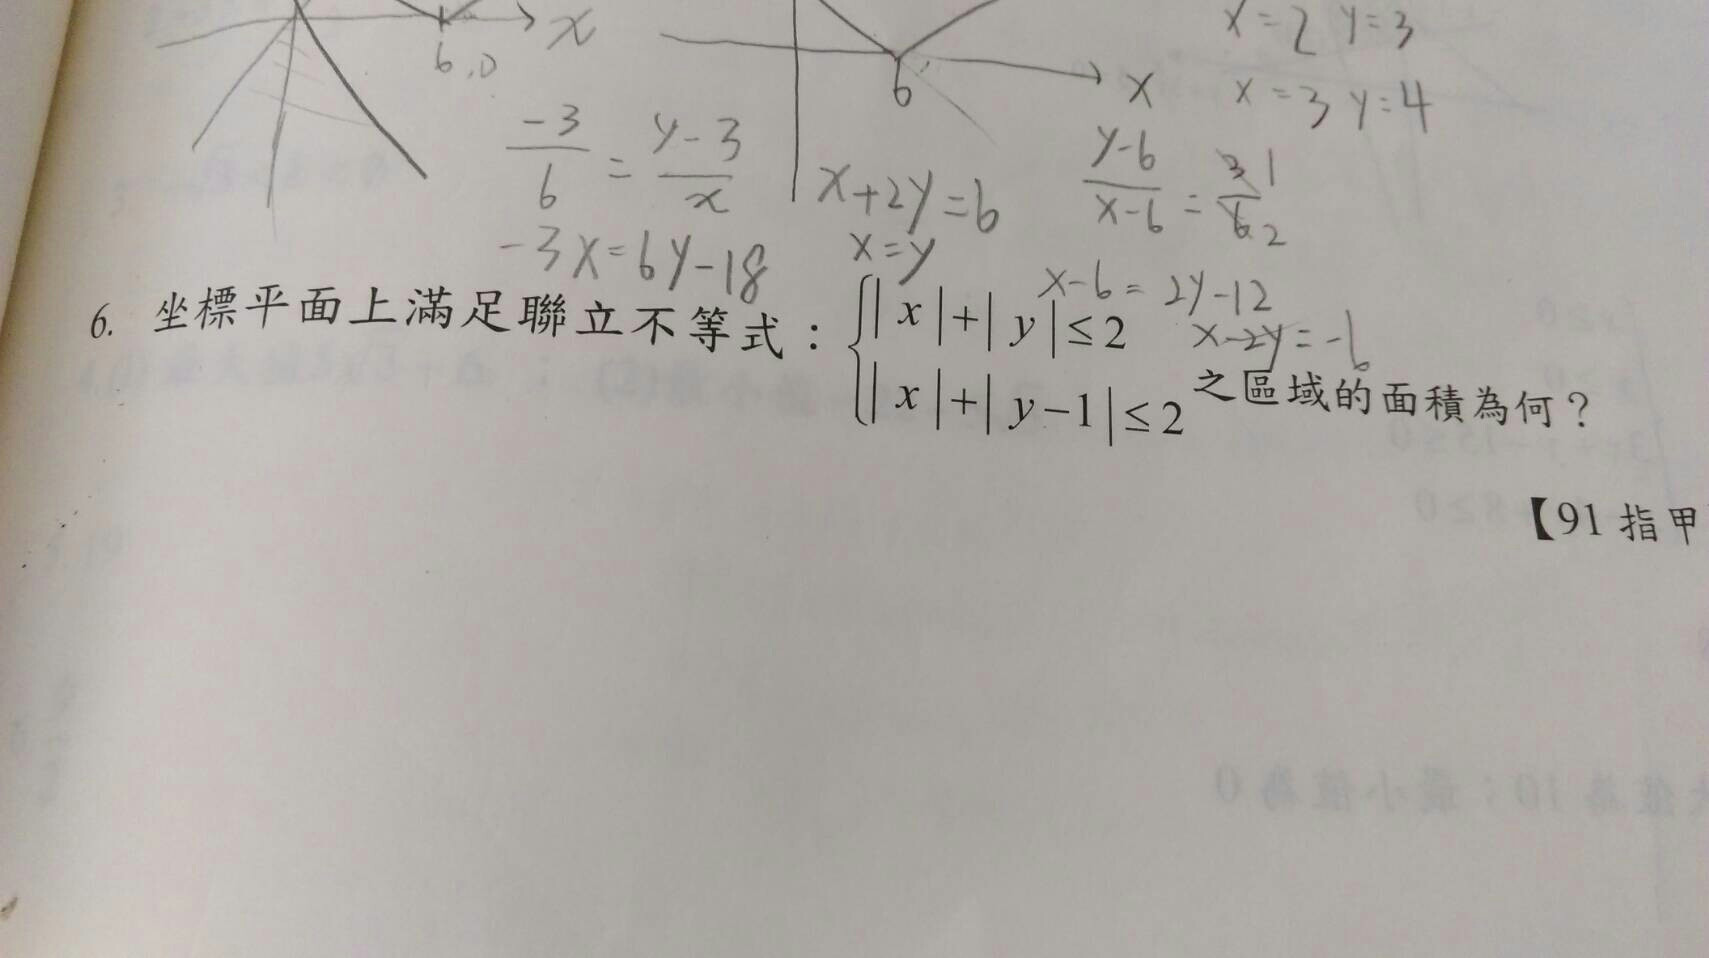 x
6,0
6
x
x=2 y=3
x=3 y=4
-3/6 = y-3/x
x+2y=6
y-6/x-6 = 3 1/6 2
-3x=6y-18
x=y
x-6=2y-12
x-2y=-6
6. 坐標平面上滿足聯立不等式：{|x|+|y|≤2
|x|+|y-1|≤2 之區域的面積為何？
【91 指甲